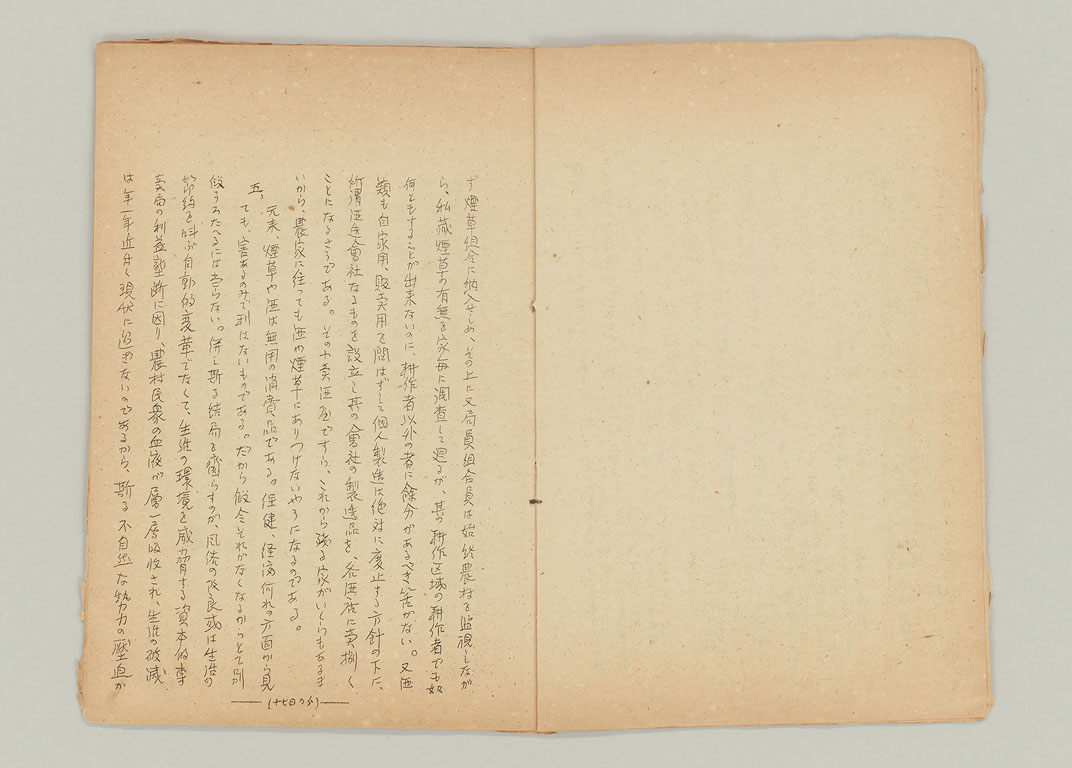 ず煙草組合に納入せしめ、その上に又局員組合員は始終農村を監視しなが
ら、私蔵煙草の有無を家毎に調査して廻るが、其の耕作区域の耕作者でも如
何ともすることが出来ないのに、耕作者以外の者に余分があるべき筈がない。又酒
類も自家用、販売用を問はずして個人製造は絶対に廃止する方針の下に、
所謂酒造會社なるものを設立し其の會社の製造品を、各酒店に売捌く
ことになるさうである。その小売酒店ですら、これから残る家がいくらもあるま
いから、農家に往っても酒や煙草にありつけないやうになるのである。
五、元来、煙草や酒は無用の消費品である。保健、経済何れの方面から見
ても、害あるのみで利はないものである。だから仮令それがなくなるからとて別
段うろたへるには当らない。併し斯る結局を齎らすのが、風俗の改良或は生活の
節約を叫ぶ自動的変革でなくて、生活の環境を威脅する資本的専
売局の利益壟断に因り、農村民衆の血液が層一層吸收され、生活の破滅
は年一年近づく現状に過ぎないのであるから、斯る不自然な勢力の壓迫か
(十七日の分)